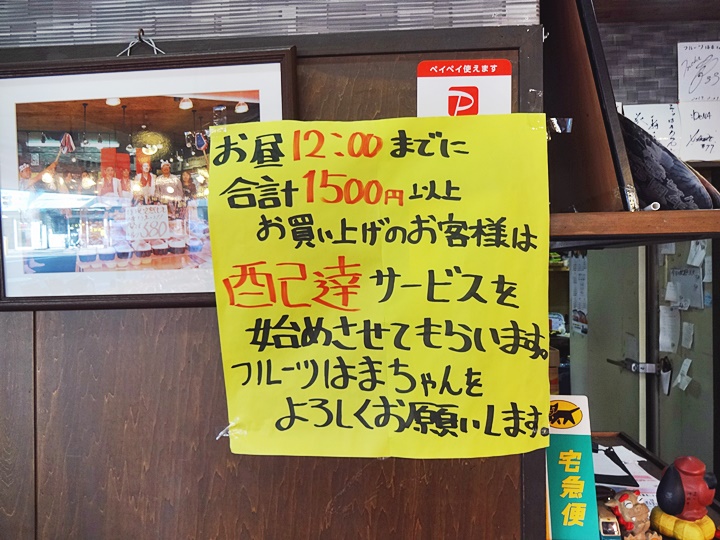 ペイペイ使えます
P
お昼12:00までに
合計1500円以上
お買い上げのお客様は
配達サービスを
始めさせてもらいます。
フルーツはまちゃんを
よろしくお願いします。
宅急便